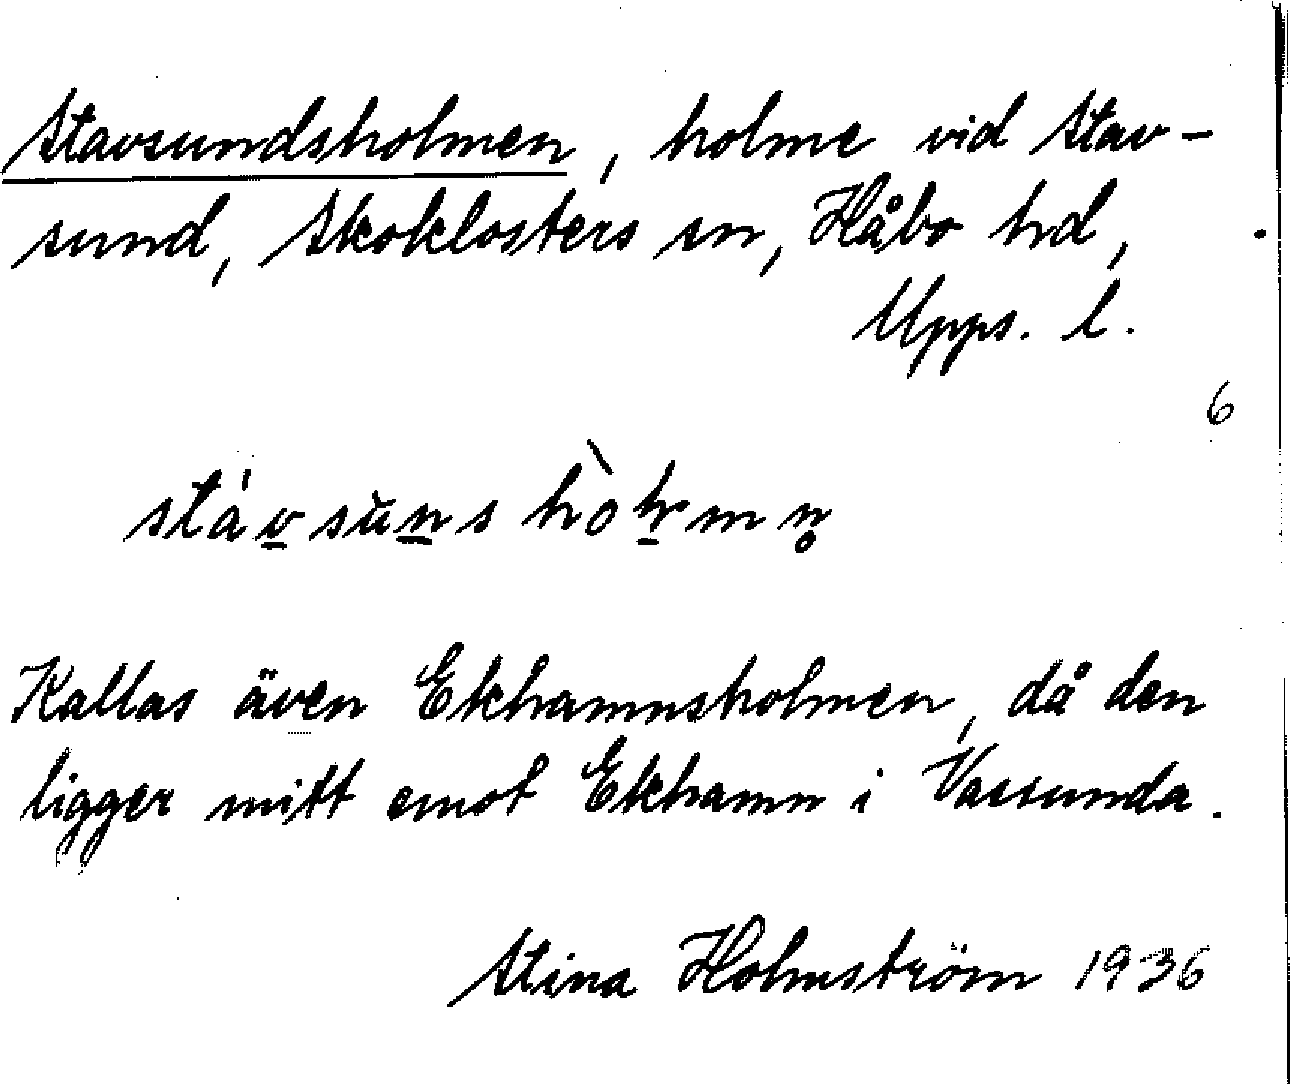 Stavsundsholmen, holme vid Stav-
sund, Skoklosters sn, Håbo hd,
Upps. l.
6
Kallas även Ekhamnsholmen, då den
ligger mitt emot Ekhamn i Vassunda.
Stina Holmström 1936